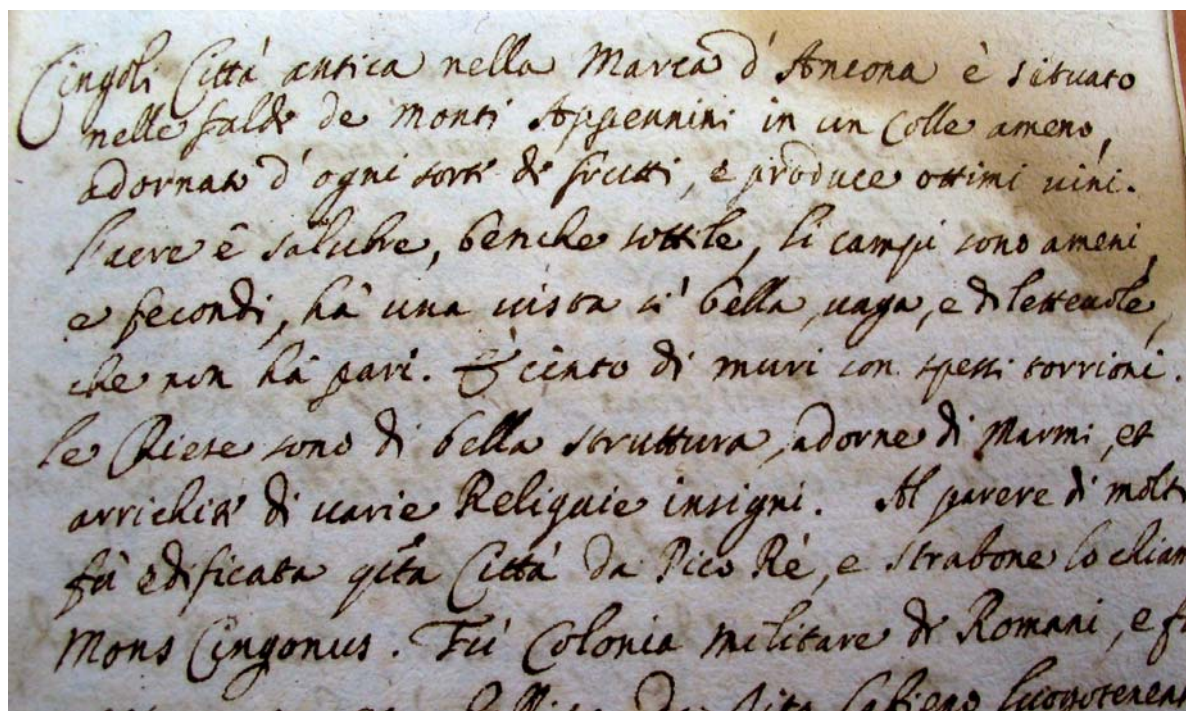 Cingoli Città antica nella Marca d'Ancona è situato
nelle falde de Monti Appennini in un Colle ameno,
adornato d'ogni sorte di frutti, e produce ottimi uini.
l'aere è salubre, benche sottile, li campi sono ameni,
e fecondi, hà una uista sì bella, uaga, e diletteuole,
che non hà pari. È cinto di muri con spessi torrioni.
le Chiese sono di bella struttura, adorne di Marmi, et
arrichite di uarie Reliquie insigni. Al parere di molti
fù edificata qsta Città da Pico Rè, e Strabone lo chiam
Mons Cingonus. Fù Colonia militare de Romani, e f
da Tito Labieno